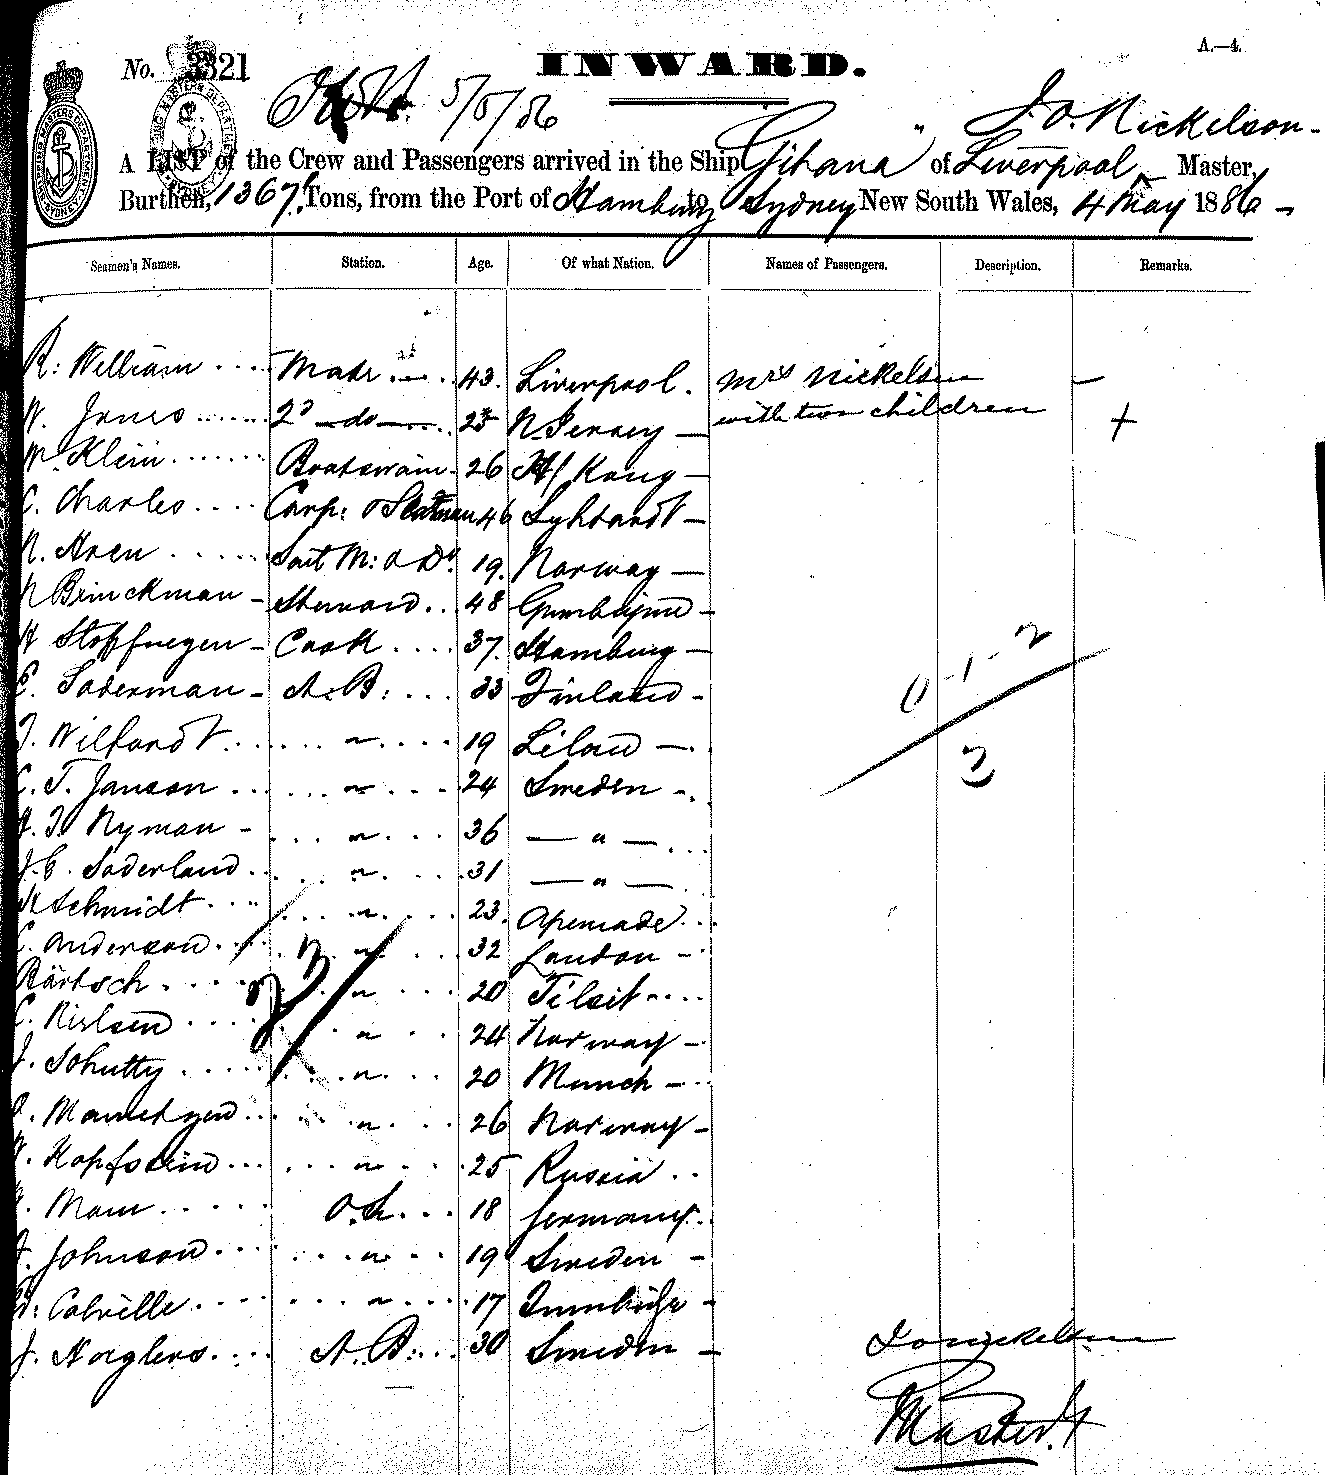 A.—4.
No. 3321 INWARD.
5/5/86
J. O. Nickelson
A LIST of the Crew and Passengers arrived in the Ship "Gitana" of Liverpool Master,
Burthen, 1367 Tons, from the Port of Hamburg to Sydney New South Wales, 4 May 1886
Seamen's Names. Station. Age. Of what Nation. Names of Passengers. Description. Remarks.
R. William Mate 43. Liverpool. Mrs Nickelsen
W. Jones 2d do N. Jersey with two children +
Klein Boatswain 26 H/ Kong
C. Charles Carp: 46
N. Aren 19. Norway
Brinckman Steward 48
H Stoffregen Cook 37. Hamburg
E. Soderman A.B. 33 Finland
Wilfandt " 19 Libau
C. T. Janson " 24 Sweden
Nyman " 36 "
Soderland " 31 "
Schmidt " 23. Apenrade
C. Anderson " 32 London
Bärtsch " 20 Tilsit
C. Nielsen " 24 Norway
J. Schutty " 20 Munch
" 26 Norway
Kopfstein " 25 Russia
O.S. 18 Germany
Johnson " 19 Sweden
Colville " 17
J. A.B. 30 Sweden
0-1-2
3
J O Nickelsen
Master